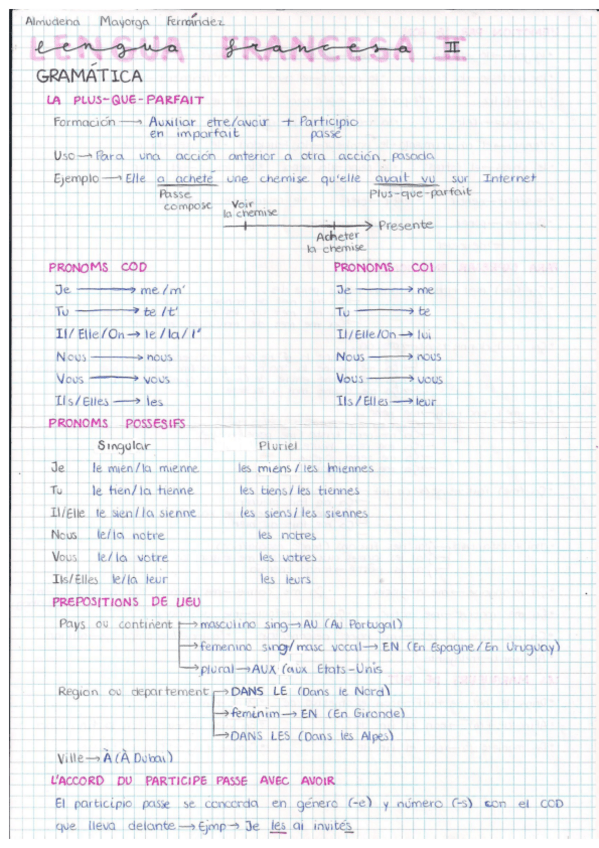 Almudena Mayorga Fernández
LENGUA FRANCESA II
lengua francesa II
GRAMÁTICA
LA PLUS-QUE-PARFAIT
Formación → Auxiliar etre/avoir + Participio
en imparfait passé
Uso → Para una acción anterior a otra acción pasada
Ejemplo → Elle a acheté une chemise qu'elle avait vu sur Internet
Passe Plus-que-parfait
compose
Voir
la chemise
→ Presente
Acheter
la chemise
PRONOMS COD PRONOMS COI
Je → me/m' Je → me
Tu → te/t' Tu → te
Il/Elle/On → le/la/l' Il/Elle/On → lui
Nous → nous Nous → nous
Vous → vous Vous → vous
Ils/Elles → les Ils/Elles → leur
PRONOMS POSSESIFS
Singular Pluriel
Je le mien/la mienne les miens/les miennes
Tu le tien/la tienne les tiens/les tiennes
Il/Elle le sien/la sienne les siens/les siennes
Nous le/la notre les notres
Vous le/la votre les votres
Ils/Elles le/la leur les leurs
PREPOSITIONS DE LIEU
Pays ou continent → masculino sing → AU (Au Portugal)
→ femenino sing/masc vocal → EN (En Espagne/En Uruguay)
→ plural → AUX (aux Etats-Unis
Region ou departement → DANS LE (Dans le Nord)
→ feminim → EN (En Gironde)
→ DANS LES (Dans les Alpes)
Ville → À (À Dubai)
L'ACCORD DU PARTICIPE PASSE AVEC AVOIR
El participio passe se concorda en género (-e) y número (-s) con el COD
que lleva delante → Ejmp → Je les ai invités